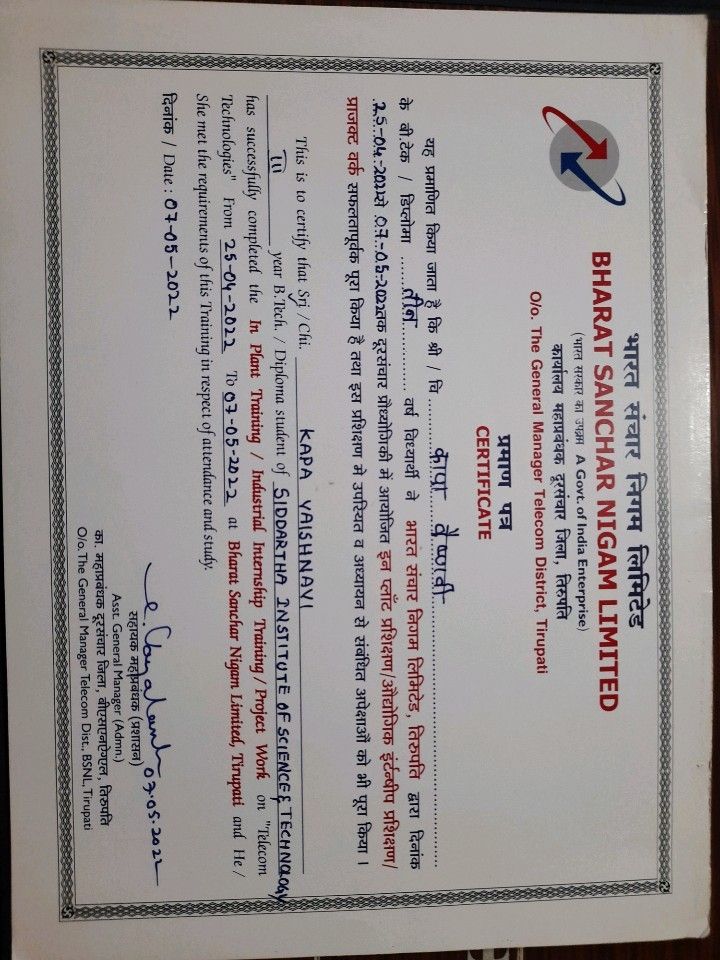 भारत संचार निगम लिमिटेड
BHARAT SANCHAR NIGAM LIMITED
(भारत सरकार का उपक्रम A Govt. of India Enterprise)
कार्यालय महाप्रबंधक दूरसंचार जिला, तिरुपति
O/o. The General Manager Telecom District, Tirupati
प्रमाण पत्र
CERTIFICATE
यह प्रमाणित किया जाता है कि श्री / चि ............ कापा वैष्णवी ............
के बी.टेक / डिप्लोमा ...... तीन ............ वर्ष विध्यार्थी ने भारत संचार निगम लिमिटेड, तिरुपति द्वारा दिनांक
25-04-2022 से 07-05-2022 तक दूरसंचार प्रौध्योगिकी में आयोजित इन प्लाँट प्रशिक्षण/औद्योगिक इंटर्नशीप प्रशिक्षण/
प्राजक्ट वर्क सफलतापूर्वक पूरा किया है तथा इस प्रशिक्षण मे उपस्थित व अध्यायन से संबंधित अपेक्षाऔं को भी पूरा किया ।
This is to certify that Sri / Chi. KAPA VAISHNAVI
III year B.Tech. / Diploma student of SIDDARTHA INSTITUTE OF SCIENCE & TECHNOLOGY
has successfully completed the In Plant Training / Industrial Internship Training / Project Work on "Telecom
Technologies" From 25-04-2022 To 07-05-2022 at Bharat Sanchar Nigam Limited, Tirupati and He /
She met the requirements of this Training in respect of attendance and study.
दिनांक / Date : 07-05-2022
07.05.2022
सहायक महाप्रबंधक (प्रशासन)
Asst. General Manager (Admn.)
का. महाप्रबंधक दूरसंचार जिला, बीएसएनऐग्एल, तिरुपति
O/o. The General Manager Telecom Dist., BSNL, Tirupati